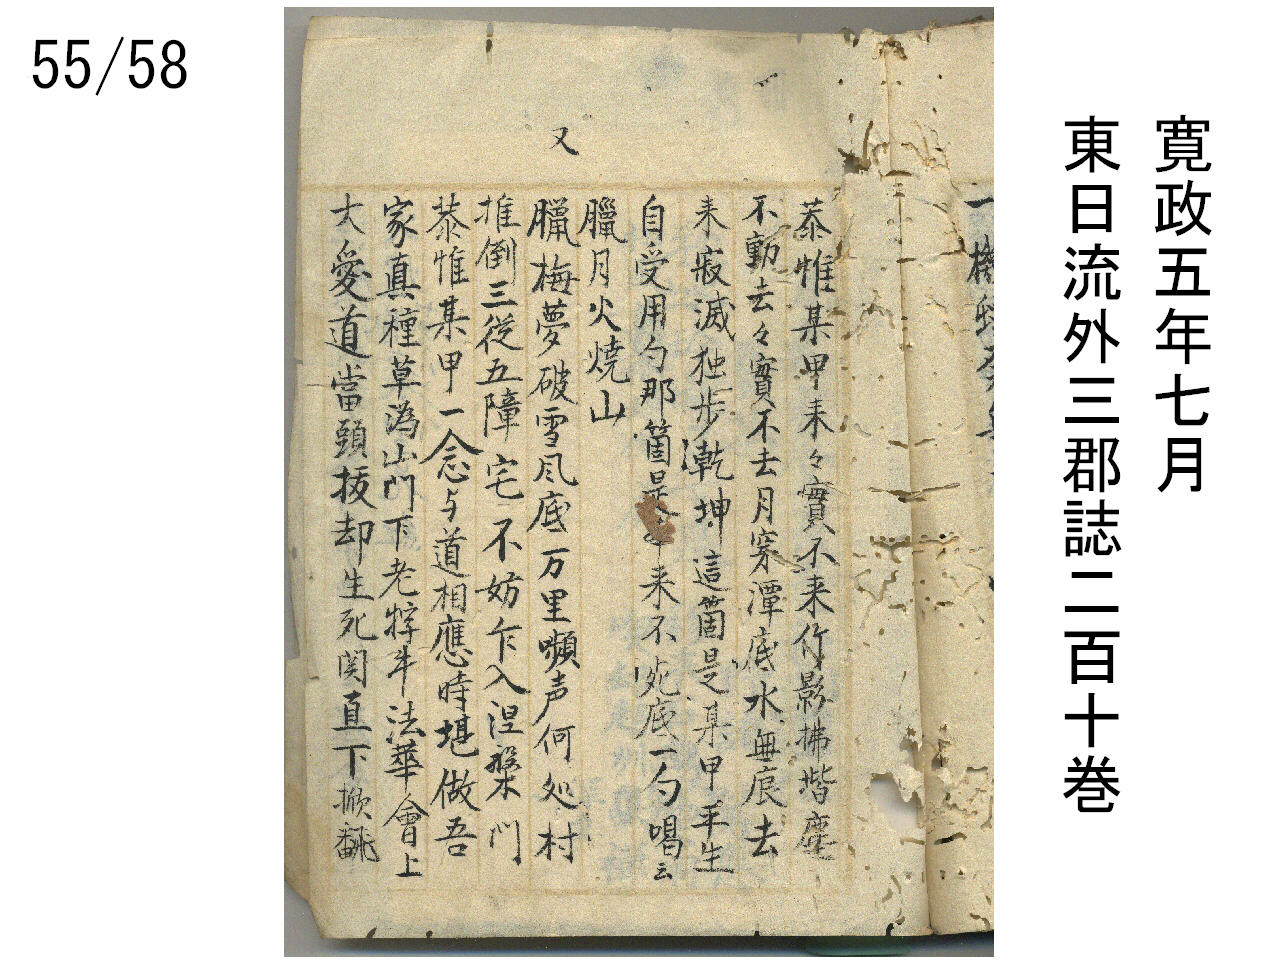 55/58
寛政五年七月
東日流外三郡誌二百十巻
恭惟某甲来々實不来竹影拂堦塵
不動去々實不去月穿潭底水無痕去
来寂滅独步乾坤這箇是某甲平生
自受用勺那箇是 来不死底一勺喝云
臘月火燒山
又
臘梅夢破雪风底万里嚬声何処村
推倒三従五障宅不妨乍入涅槃門
恭惟某甲一念与道相應時堪做吾
家真種草溈山門下老牸牛法華會上
大愛道當頭拔却生死関直下掀翻